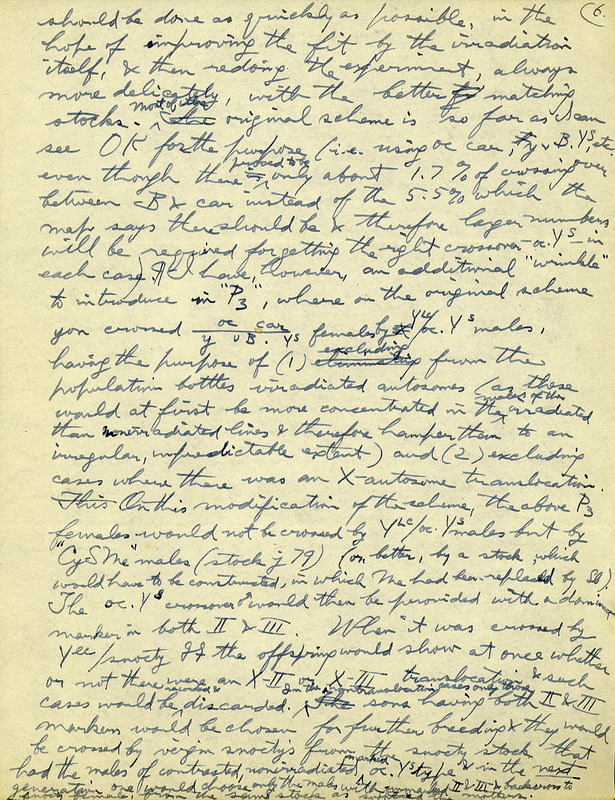 6.
should be done as quickly as possible, in the
hope of improving the fit by the irradiation
itself, & then redoing the experiment, always
more delicately, with the better matching
stocks. most of the original scheme is so far as I can
see OK for the purpose (i.e. using oc car, y v B. Yˢ, etc
even though there proved to be only about 1.7% of crossing over
between B & car instead of the 5.5% which the
map says there should be & therefore larger numbers
will be required for getting the right crossover oc. Yˢ in
each case). ¶ I have, however, an additional "wrinkle"
to introduce in "P₃", where on the original scheme
you crossed oc car / y v B. Yˢ females by Yᴸᶜ/oc. Yˢ males,
having the purpose of (1) excluding from the
population bottles irradiated autosomes (as these
would at first be more concentrated in the males of the irradiated
than nonirradiated lines & therefore hamper them to an
irregular, unpredictable extent) and (2) excluding
cases where there was an X-autosome translocation.
This On this modification of the scheme, the above P₃
females would not be crossed by Yᴸᶜ/oc. Yˢ males but by
"Cy S Me" males (stock j 79) (or, better, by a stock, which
would have to be constructed, in which Me had been replaced by Sb)
The oc. Yˢ crossover ♂ would then be provided with a dominant
marker in both II & III. When it was crossed by
Yᴸᶜ/snocty ♀♀ the offspring would show at once whether
or not there were an X-II or X-III translocation & such
cases would be recorded & discarded. In the non-translocation cases only those sons having both II & III
markers would be chosen for further breeding & they would
be crossed by vergm snoctys from the snocty stock that
had the males of contrasted, nonirradiated oc. Yˢ type & in the next
generation one would choose only the males with unmarked II & III & backcross to
snocty females from the same stock as